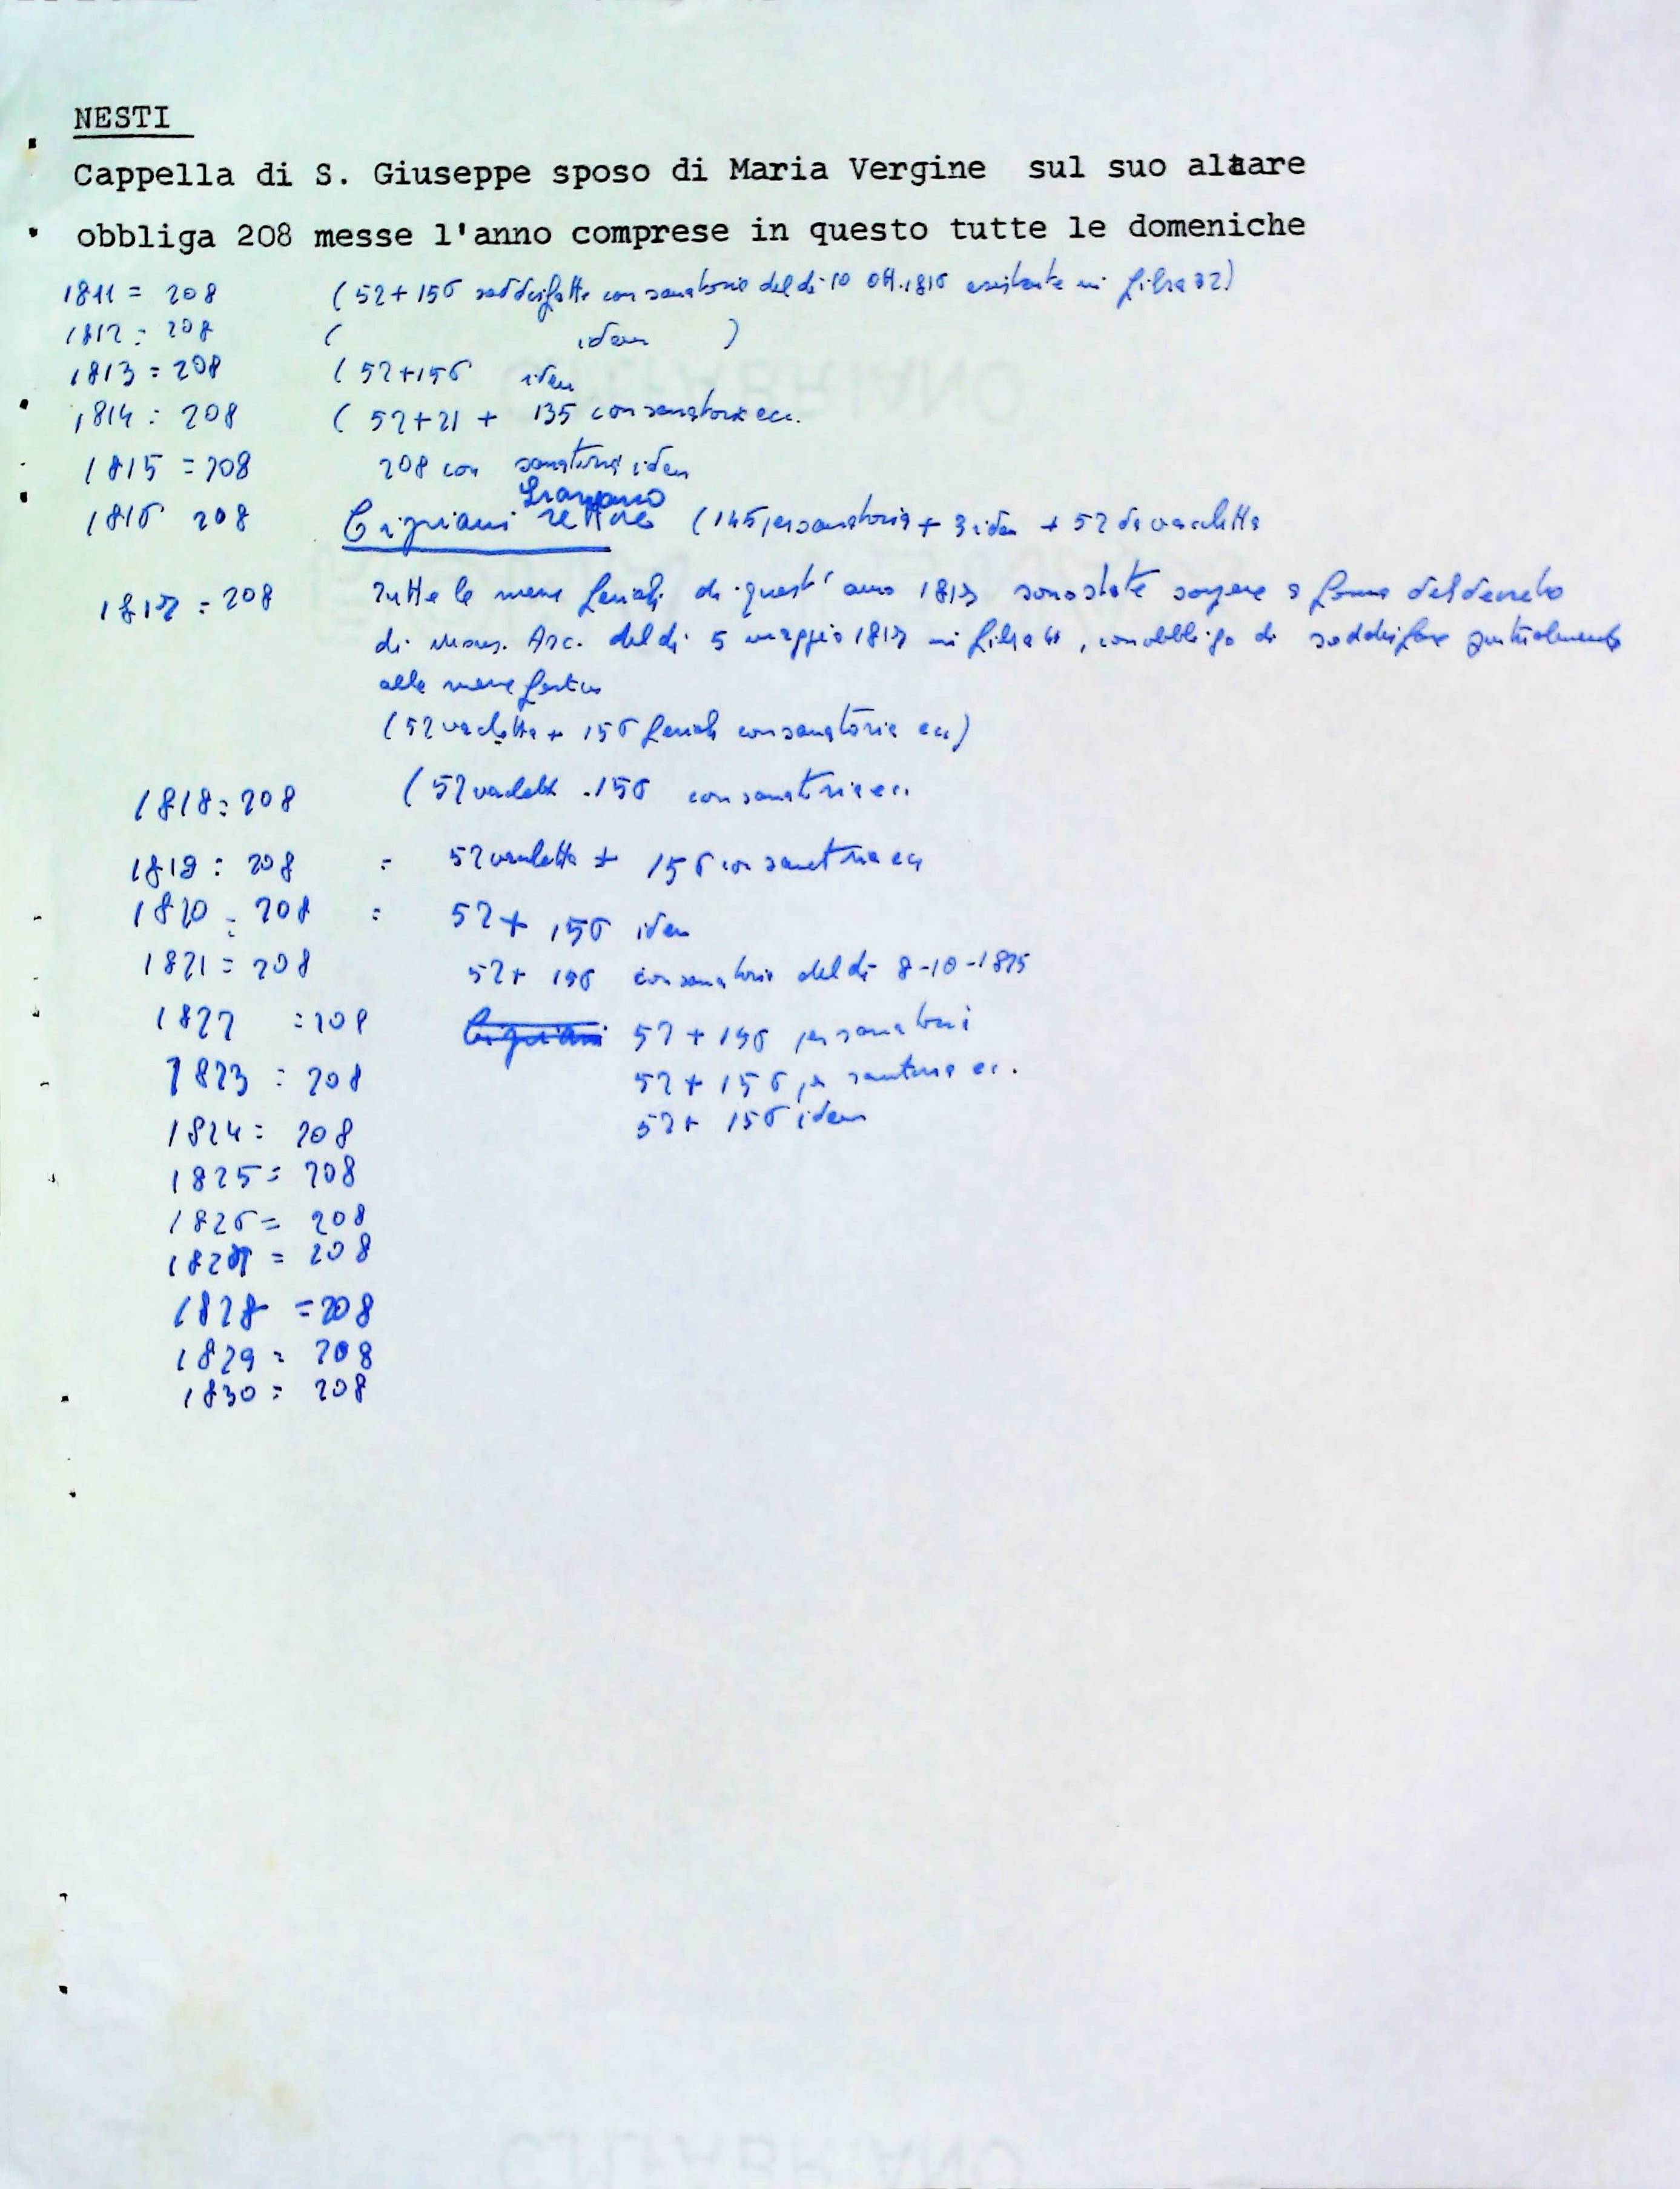 NESTI
Cappella di S. Giuseppe sposo di Maria Vergine sul suo altare
obbliga 208 messe l'anno comprese in questo tutte le domeniche
1811 = 208 (52+156 soddisfatte con sanatoria del dì 10 ott. 1816 esistente in filza 32)
1812 = 208 ( idem )
1813 = 208 (52+156 idem
1814 = 208 (52+21 + 135 con sanatoria ecc.
1815 = 208 208 con sanatoria idem
1816 208 Cipriani rettore (145 per sanatoria + 3 idem + 52 da vacchetta
1817 = 208 Tutte le messe feriali di quest'anno 1817 sono state sospese a forma del decreto
di Mons. Arc. del dì 5 maggio 1817 in filza, con obbligo di soddisfare puntualmente
alle messe festive
(52 vacchetta + 156 feriali con sanatoria ecc)
1818 = 208 (52 vacchetta . 156 con sanatoria ecc.
1819 = 208 = 52 vacchetta + 156 con sanatoria ecc
1820 = 208 = 52 + 156 idem
1821 = 208 52 + 156 con sanatoria del dì 8-10-1825
1822 = 208 Cipriani 52 + 156 per sanatoria
1823 = 208 52 + 156 per sanatoria ec.
1824 = 208 52 + 156 idem
1825 = 208
1826 = 208
1827 = 208
1828 = 208
1829 = 208
1830 = 208
C.M.FABRIANO
C.M.FABRIANO